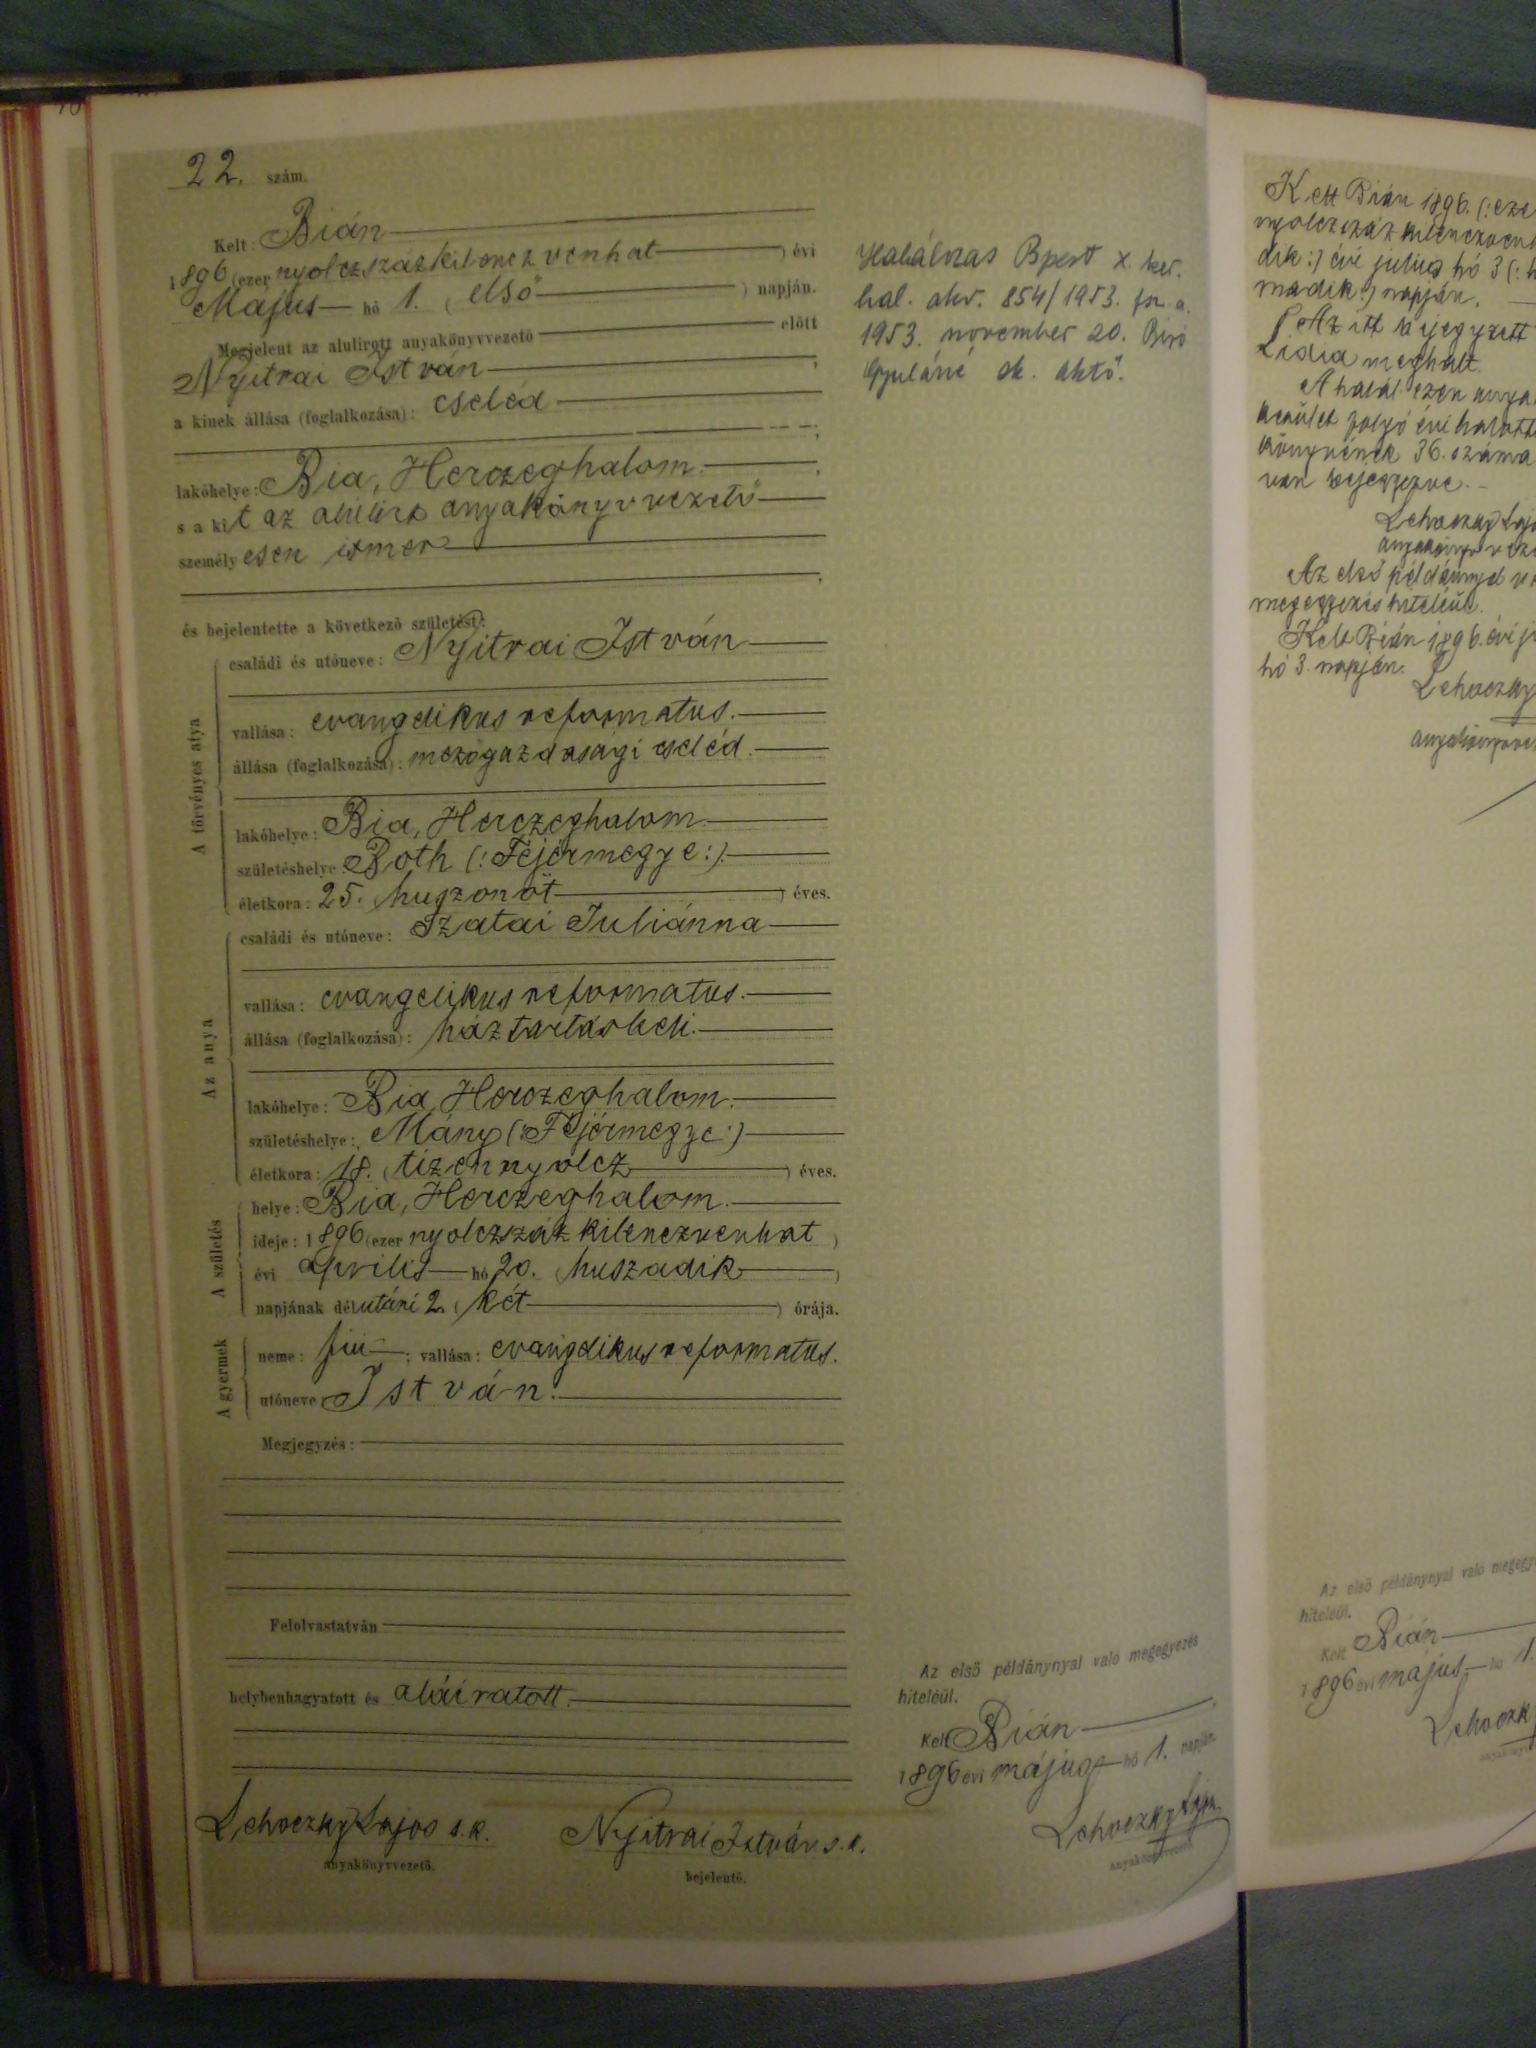 22. szám.
Kelt: Bián
1896 (ezer nyolczszázkilenczvenhat) évi
Május hó 1. (első) napján.
Megjelent az alulirott anyakönyvvezető előtt
Nyitrai István,
a kinek állása (foglalkozása): cseléd
lakóhelye: Bia, Herczeghalom.,
s a kit az alulirt anyakönyvvezető
személyesen ismer
és bejelentette a következő születést:
A törvényes atya
családi és utóneve: Nyitrai István
vallása: evangelikus reformatus.
állása (foglalkozása): mezőgazdasági cseléd.
lakóhelye: Bia, Herczeghalom.
születéshelye: Both (: Fejérmegye :).
életkora: 25. (huszonöt) éves.
Az anya
családi és utóneve: Szatai Juliánna
vallása: evangelikus reformatus.
állása (foglalkozása): háztartásbeli.
lakóhelye: Bia, Herczeghalom.
születéshelye: Mány (: Fejérmegye :)
életkora: 18. (tizennyolcz) éves.
A születés
helye: Bia, Herczeghalom.
ideje: 1896 (ezer nyolczszáz kilenczvenhat)
évi április hó 20. (huszadik)
napjának délutáni 2. (két) órája.
A gyermek
neme: fiu; vallása: evangelikus reformatus.
utóneve: István.
Megjegyzés:
Felolvastatván
helybenhagyatott és aláiratott.
Lehoczky Lajos s.k.
anyakönyvvezető.
Nyitrai István s.k.
bejelentő.
Halálozás Bpest X. ker.
hal. akv. 854/1953. fsz. a.
1953. november 20. Biró
Gyuláné ak.
Az első példánynyal való megegyezés
hiteléül.
Kelt Bián
1896 évi május hó 1. napján
Lehoczky Lajos
anyakönyvvezető
Kelt Bián 1896. (: eze
nyolczszázkilenczven
dik :) évi julius hó 3 (: h
madik :) napján.
Az itt bejegyzett
Lidia meghalt.
A halál ezen anya
kerület folyó évi halott
könyvének 36. száma
van bejegyezve.
Lehoczky Lajo
anyakönyvveze
Az első példánynyal v
megegyezés hiteléül.
Kelt Bián 1896. évi ju
hó 3. napján.
Lehoczky
anyakönyvve
Az első példánynyal való megegy
hiteléül.
Kelt Bián
1896 évi május hó 1.
Lehoczk